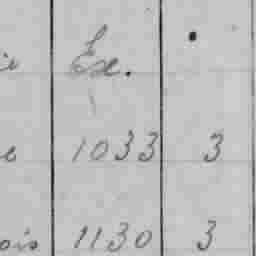 Ex.
1033 3
ois 1130 3